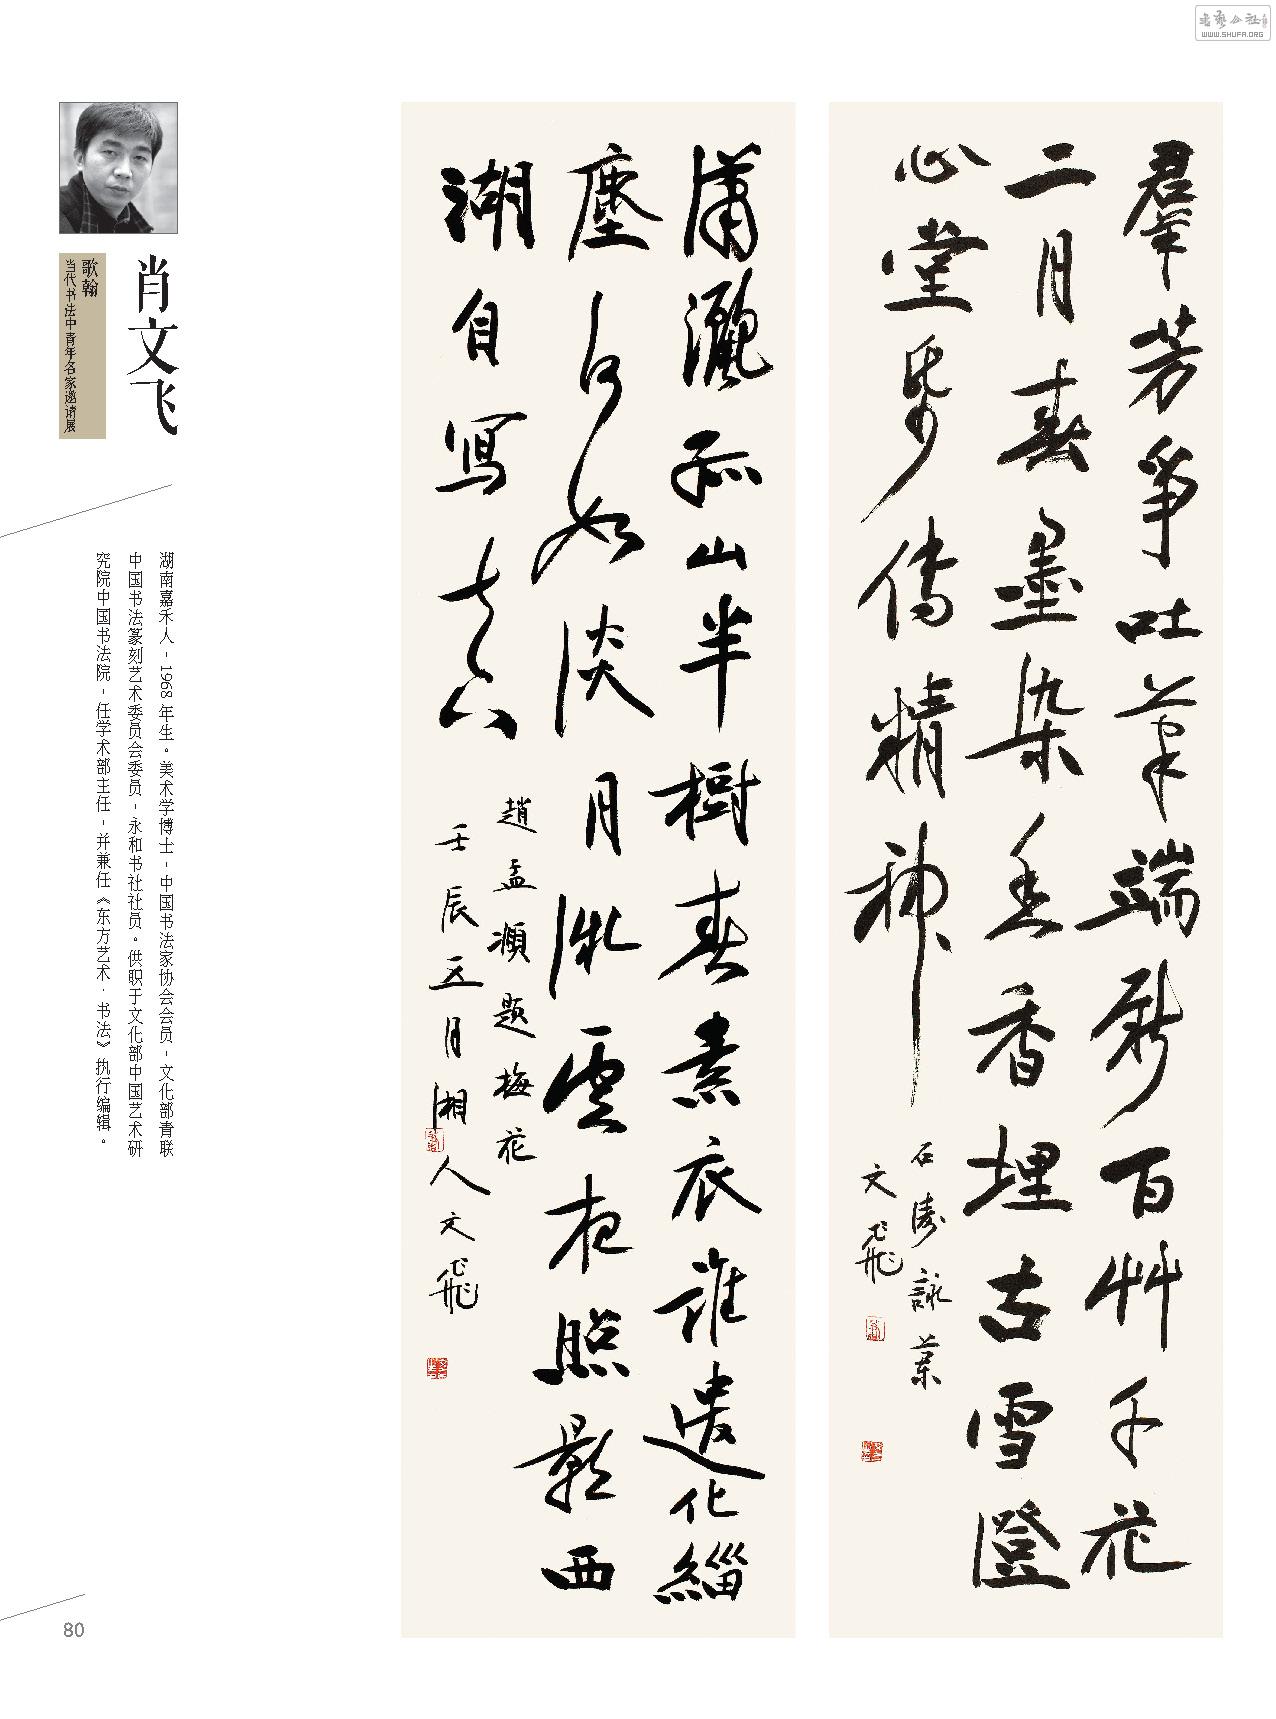 書藝公社
WWW.SHUFA.ORG
肖文飞
歌翰
当代书法中青年名家邀请展
湖南嘉禾人-1968年生。美术学博士-中国书法家协会会员-文化部青联
中国书法篆刻艺术委员会委员-永和书社社员。供职于文化部中国艺术研
究院中国书法院-任学术部主任-并兼任《东方艺术·书法》执行编辑。
羣芳爭吐筆端新百艸千花
二月春墨染香埋古雪澄
心堂帋傳精神
石濤詠
文飛
瀟灑孤山半樹春素衣誰遣化緇
塵何如淡月微雲夜照影西
湖自寫真
趙孟頫題梅花
壬辰五月湘人文飛
80